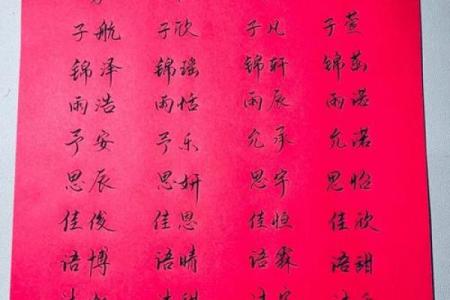 子航 子欣 子凡 子萱
锦泽 锦瑶 锦轩 锦茵
雨浩 雨恬 雨辰 雨诺
予安 予乐 允承 允诺
思辰 思妍 思宇 思怡
佳俊 佳思 佳恒 佳欣
语博 语晴 语霖 语甜